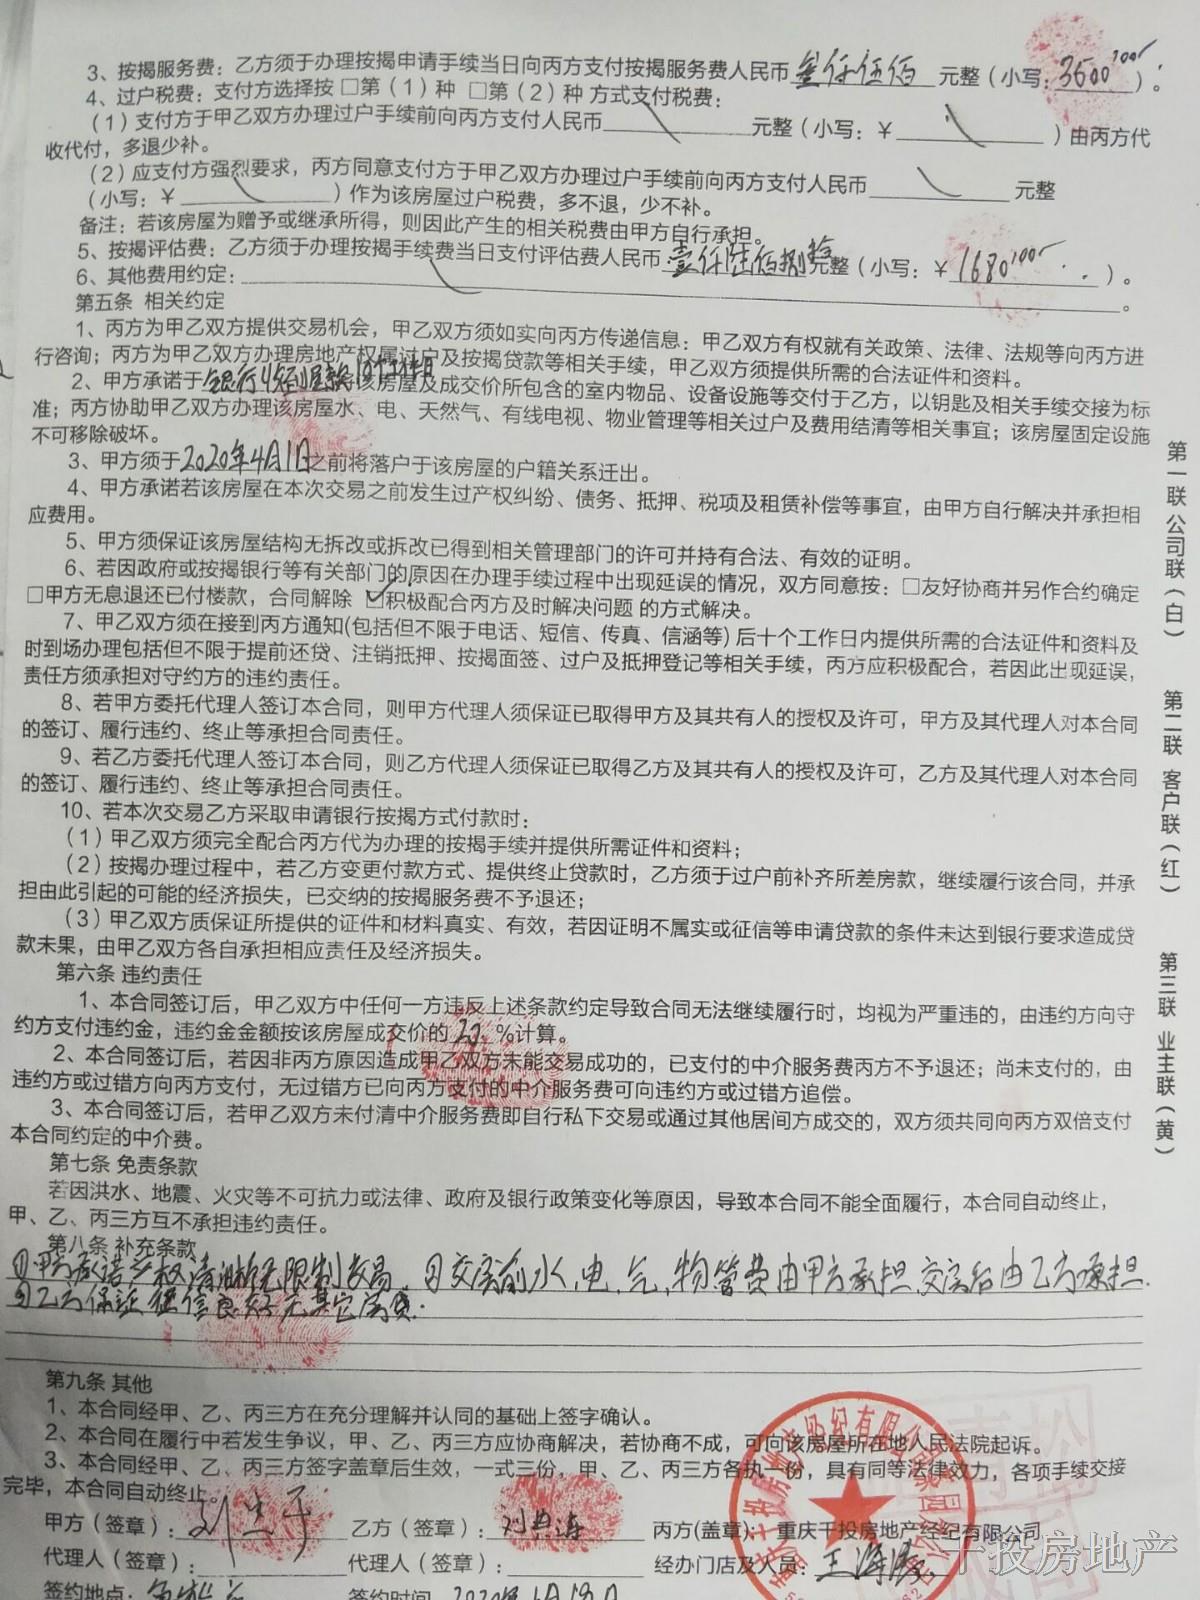 3、按揭服务费：乙方须于办理按揭申请手续当日向丙方支付按揭服务费人民币 叁仟伍佰 元整（小写：3500 ）。
4、过户税费：支付方选择按 □第（1）种 □第（2）种 方式支付税费：
（1）支付方于甲乙双方办理过户手续前向丙方支付人民币 元整（小写：￥ ）由丙方代
收代付，多退少补。
（2）应支付方强烈要求，丙方同意支付方于甲乙双方办理过户手续前向丙方支付人民币 元整
（小写：￥ ）作为该房屋过户税费，多不退，少不补。
备注：若该房屋为赠予或继承所得，则因此产生的相关税费由甲方自行承担。
5、按揭评估费：乙方须于办理按揭手续费当日支付评估费人民币 壹仟陆佰捌拾 元整（小写：￥ 1680 ）。
6、其他费用约定： 。
第五条 相关约定
1、丙方为甲乙双方提供交易机会，甲乙双方须如实向丙方传递信息：甲乙双方有权就有关政策、法律、法规等向丙方进
行咨询；丙方为甲乙双方办理房地产权属过户及按揭贷款等相关手续，甲乙双方须提供所需的合法证件和资料。
2、甲方承诺于 将该房屋及成交价所包含的室内物品、设备设施等交付于乙方，以钥匙及相关手续交接为标
准；丙方协助甲乙双方办理该房屋水、电、天然气、有线电视、物业管理等相关过户及费用结清等相关事宜；该房屋固定设施
不可移除破坏。
3、甲方须于2020年4月1日之前将落户于该房屋的户籍关系迁出。
4、甲方承诺若该房屋在本次交易之前发生过产权纠纷、债务、抵押、税项及租赁补偿等事宜，由甲方自行解决并承担相
应费用。
5、甲方须保证该房屋结构无拆改或拆改已得到相关管理部门的许可并持有合法、有效的证明。
6、若因政府或按揭银行等有关部门的原因在办理手续过程中出现延误的情况，双方同意按：□友好协商并另作合约确定
□甲方无息退还已付楼款，合同解除 ☑积极配合丙方及时解决问题 的方式解决。
7、甲乙双方须在接到丙方通知(包括但不限于电话、短信、传真、信涵等) 后十个工作日内提供所需的合法证件和资料及
时到场办理包括但不限于提前还贷、注销抵押、按揭面签、过户及抵押登记等相关手续，丙方应积极配合，若因此出现延误，
责任方须承担对守约方的违约责任。
8、若甲方委托代理人签订本合同，则甲方代理人须保证已取得甲方及其共有人的授权及许可，甲方及其代理人对本合同
的签订、履行违约、终止等承担合同责任。
9、若乙方委托代理人签订本合同，则乙方代理人须保证已取得乙方及其共有人的授权及许可，乙方及其代理人对本合同
的签订、履行违约、终止等承担合同责任。
10、若本次交易乙方采取申请银行按揭方式付款时：
（1）甲乙双方须完全配合丙方代为办理的按揭手续并提供所需证件和资料；
（2）按揭办理过程中，若乙方变更付款方式、提供终止贷款时，乙方须于过户前补齐所差房款，继续履行该合同，并承
担由此引起的可能的经济损失，已交纳的按揭服务费不予退还；
（3）甲乙双方质保证所提供的证件和材料真实、有效，若因证明不属实或征信等申请贷款的条件未达到银行要求造成贷
款未果，由甲乙双方各自承担相应责任及经济损失。
第六条 违约责任
1、本合同签订后，甲乙双方中任何一方违反上述条款约定导致合同无法继续履行时，均视为严重违的，由违约方向守
约方支付违约金，违约金金额按该房屋成交价的 20 %计算。
2、本合同签订后，若因非丙方原因造成甲乙双方未能交易成功的，已支付的中介服务费丙方不予退还；尚未支付的，由
违约方或过错方向丙方支付，无过错方已向丙方支付的中介服务费可向违约方或过错方追偿。
3、本合同签订后，若甲乙双方未付清中介服务费即自行私下交易或通过其他居间方成交的，双方须共同向丙方双倍支付
本合同约定的中介费。
第七条 免责条款
若因洪水、地震、火灾等不可抗力或法律、政府及银行政策变化等原因，导致本合同不能全面履行，本合同自动终止，
甲、乙、丙三方互不承担违约责任。
第八条 补充条款
①甲方承诺产权清晰无限制交易. ②交房前水,电,气,物管费由甲方承担,交房后由乙方承担.
③乙方保证征信良好无其它房贷.
第九条 其他
1、本合同经甲、乙、丙三方在充分理解并认同的基础上签字确认。
2、本合同在履行中若发生争议，甲、乙、丙三方应协商解决，若协商不成，可向该房屋所在地人民法院起诉。
3、本合同经甲、乙、丙三方签字盖章后生效，一式三份，甲、乙、丙三方各执一份，具有同等法律效力，各项手续交接
完毕，本合同自动终止。
甲方（签章）： 乙方（签章）： 丙方(盖章)： 重庆千投房地产经纪有限公司
代理人（签章）： 代理人（签章）： 经办门店及人员：
签约地点： 签约时间
第一联 公司联（白）
第二联 客户联（红）
第三联 业主联（黄）
千投房地产